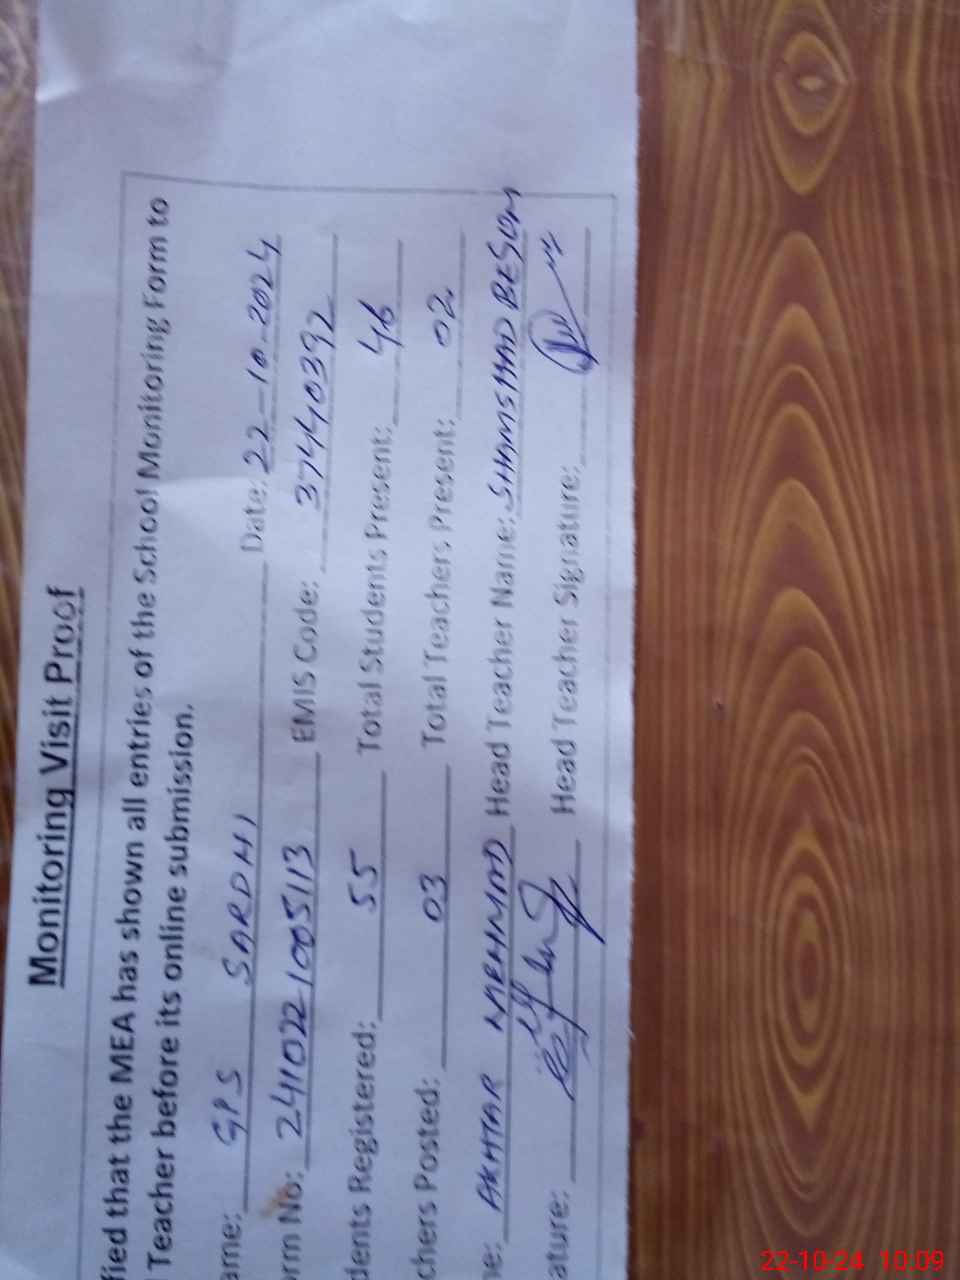 Monitoring Visit Proof
fied that the MEA has shown all entries of the School Monitoring Form to
Teacher before its online submission.
ame: GPS SARDHI Date: 22-10-2024
orm No: 2411022100S113 EMIS Code: 37440392
dents Registered: 55 Total Students Present: 46
chers Posted: 03 Total Teachers Present: 02
ne: AKHTAR Head Teacher Name: SHAMSHAD BEGUM
ature: Head Teacher Signature:
22-10-24 10:09